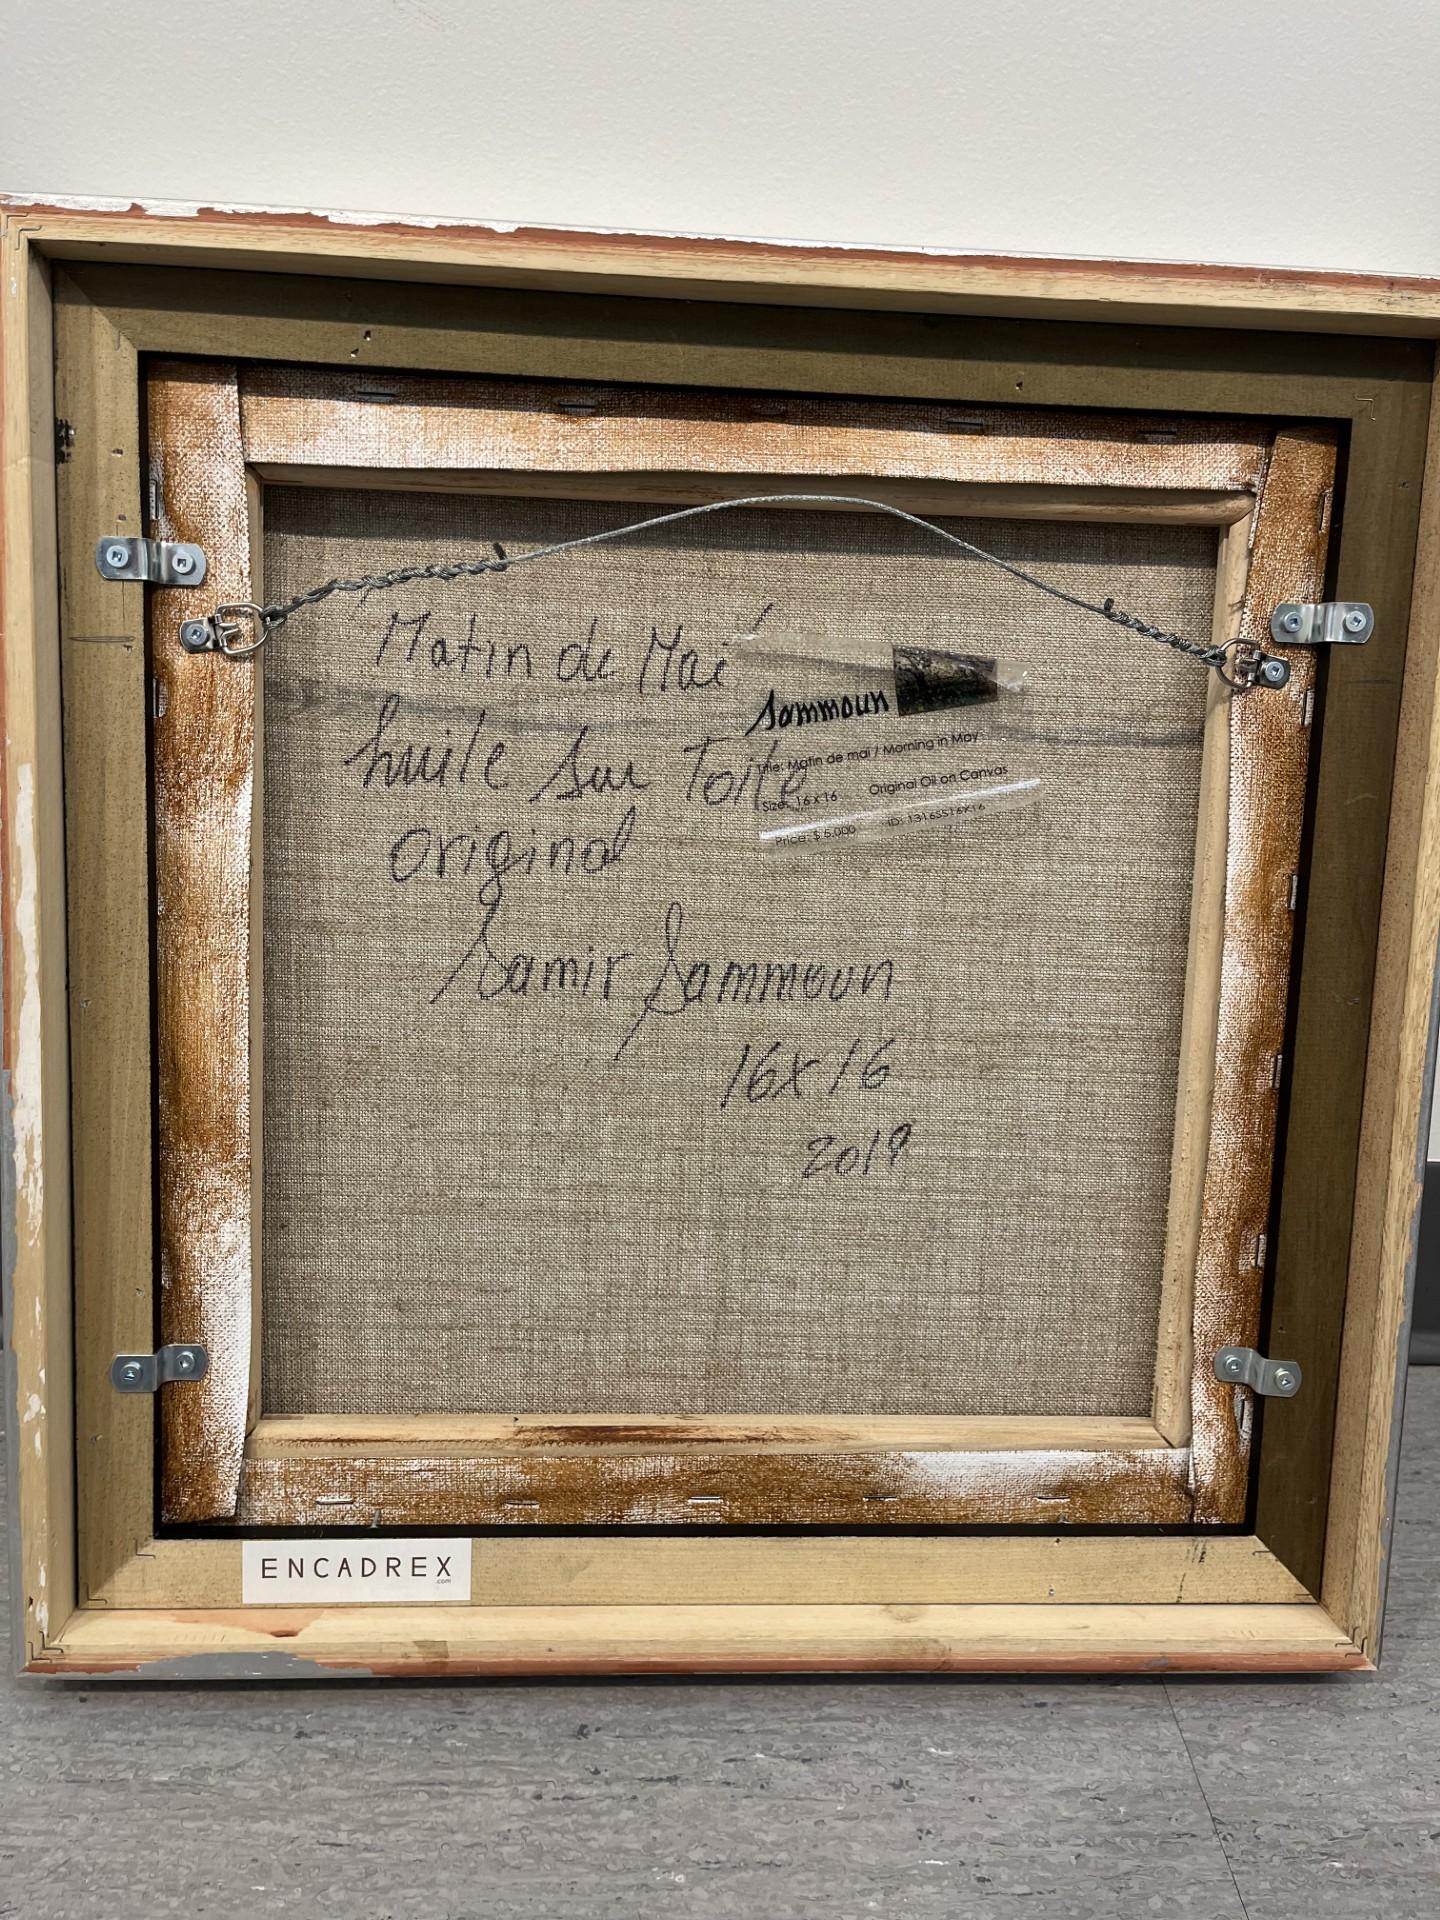 Matin de Mai
huile sur Toile
original
Samir Sammoun
16x16
2019
Sammoun
Title: Matin de mai / Morning in May
Size: 16 x 16 Original Oil on Canvas
Price: $ 5,000 ID: 1316SS16X16
ENCADREX
.com